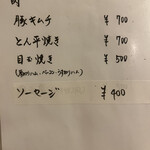 豚キムチ ¥700
とん平焼き ¥700
目玉焼き ¥500
ソーセージ ¥400